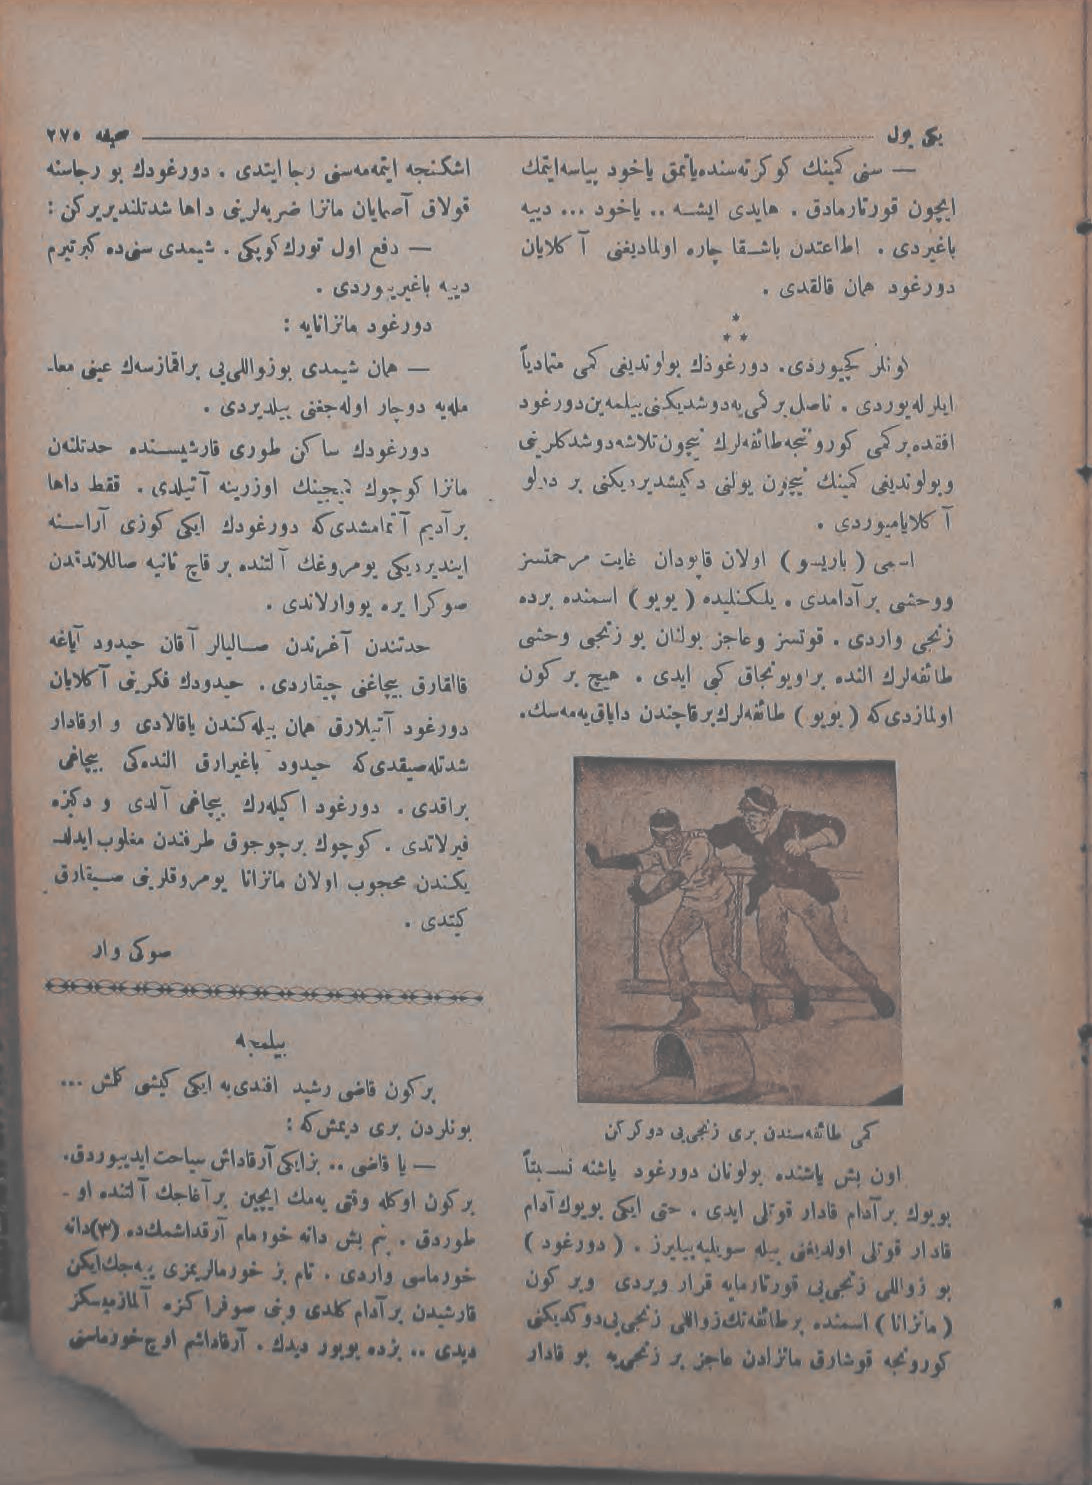 یكی یول
صحیفه ٢٧٥
— سنی كمینك كوكرته‌سنده یاتمق یاخود پیاسه ایتمك
ایچون قورتارمادق . هایدی ایشه .. یاخود ... دییه
باغیردی . اطاعتدن باشقا چاره اولمادیغنی آكلایان
دورغود همان قالقدی .
* * *
كونلر كچییوردی. دورغودك بولوندیغی كمی متمادیاً
ایلرله‌یوردی . ناصل بر كمی‌یه دوشدیكنی بیلمه‌ین دورغود
افقده بر كمی كورونجه طائفه‌لرك نیچون تلاشه دوشدكلرینی
وبولوندیغی كمینك نیچون یولنی دكیشدیردیكنی بر درلو
آكلایامیوردی .
اسمی ( باریسو ) اولان قاپودان غایت مرحمتسز
ووحشی بر آدامدی . یلكنلیده ( یویو ) اسمنده برده
زنجی واردی . قوتسز وعاجز بولنان بو زنجی وحشی
طائفه‌لرك النده بر اویونجاق كبی ایدی . هیچ بر كون
اولمازدی كه ( یویو ) طائفه‌لرك برقاچندن دایاق یه‌مه‌سك.
كمی طائفه‌سندن بری زنجی‌یی دوكركن
اون بش یاشنده بولونان دورغود یاشنه نسبتاً
بویوك بر آدام قادار قوتلی ایدی . حتی ایكی بویوك آدام
قادار قوتلی اولدیغنی بیله سویلیه‌بیلیرز . ( دورغود )
بو زواللی زنجی‌یی قورتارمایه قرار ویردی وبر كون
( مانزانا ) اسمنده بر طائفه‌نك زواللی زنجی‌یی دوكدیكنی
كورونجه قوشارق مانزادن عاجز بر زنجی‌یه بو قادار
اشكنجه ایتمه‌مه‌سنی رجا ایتدی . دورغودك بو رجاسنه
قولاق آصمایان مانزا ضربه‌لرینی داها شدتلندیریركن :
— دفع اول تورك كوپكی . شیمدی سنی‌ده كبرتیرم
دییه باغیرییوردی .
دورغود مانزانایه :
— همان شیمدی بو زواللی‌یی براقمازسه‌ك عینی معا-
مله‌یه دوچار اوله‌جغنی بیلدیردی .
دورغودك ساكن طوری قارشیسنده حدتلنه‌ن
مانزا كوچوك كمیجینك اوزرینه آتیلدی . فقط داها
بر آدیم آتمامشدی كه دورغودك ایكی كوزی آراسنه
ایندیردیكی یومروغك آلتنده بر قاچ ثانیه صاللاندقدن
صوكرا یره یووارلاندی .
حدتندن آغزندن صالیالر آقان حیدود آیاغه
قالقارق بیچاغنی چیقاردی . حیدودك فكرینی آكلایان
دورغود آتیلارق همان بیله‌كندن یاقالادی و اوقادار
شدتله صیقدی كه حیدود باغیرارق النده‌كی بیچاغی
براقدی . دورغود اكیله‌رك بیچاغی آلدی و دكیزه
فیرلاتدی . كوچوك بر چوجوق طرفندن مغلوب ایدلد-
یكندن محجوب اولان مانزانا یومروقلرینی صیقارق
كیتدی .
صوكی وار
بیلمجه
بر كون قاضی رشید افندی‌یه ایكی كیشی كلمش ...
بونلردن بری دیمش كه :
— یا قاضی .. بز ایكی آرقاداش سیاحت ایدییوردق.
بر كون اوكله وقتی یه‌مك ایچین بر آغاجك آلتنده او-
طوردق . بنم بش دانه خورمام آرقداشمك ده (٣) دانه
خورماسی واردی . تام بز خورمالریمزی ییه‌جك ایكن
قارشیدن بر آدام كلدی وبنی صوفراكزه آلمازمیسكز
دیدی .. بزده بویور دیدك . آرقاداشم اوچ خورماسنی